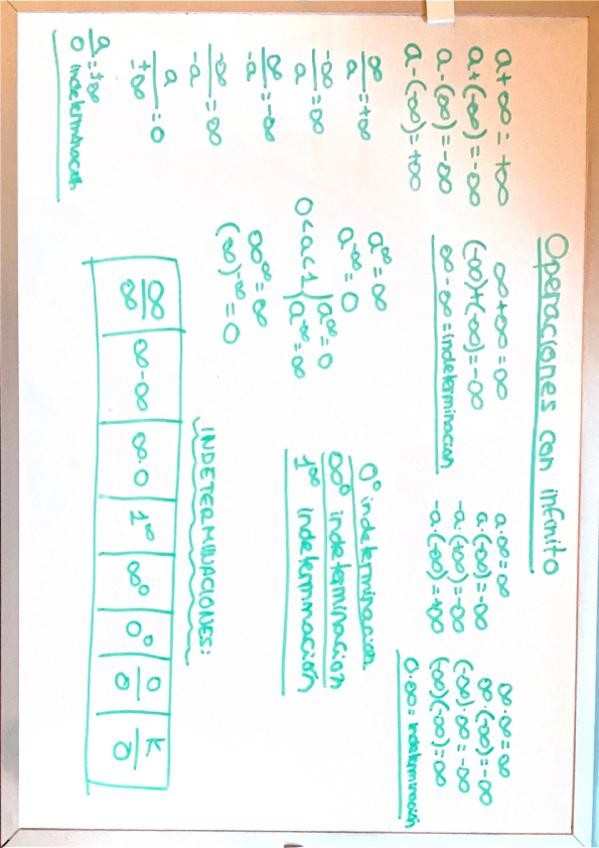 Operaciones con infinito
a+∞=+∞
a+(-∞)=-∞
a-(∞)=-∞
a-(-∞)=+∞
∞+∞=∞
(-∞)+(-∞)=-∞
∞-∞=indeterminación
a·∞=∞
a·(-∞)=-∞
-a·(+∞)=-∞
-a·(-∞)=+∞
∞·∞=∞
∞·(-∞)=-∞
(-∞)·∞=-∞
(-∞)(-∞)=∞
0·∞=indeterminación
∞/a=+∞
-∞/a=∞
∞/-a=-∞
-∞/-a=∞
a/±∞=0
a/0=±∞ indeterminación
a^∞=∞
a^-∞=0
0<a<1 { a^∞=0
a^-∞=∞
∞^∞=∞
(∞)^-∞=0
0⁰ indeterminación
∞⁰ indeterminación
1^∞ indeterminación
INDETERMINACIONES:
∞/∞ | ∞-∞ | ∞·0 | 1^∞ | ∞⁰ | 0⁰ | 0/0 | K/0